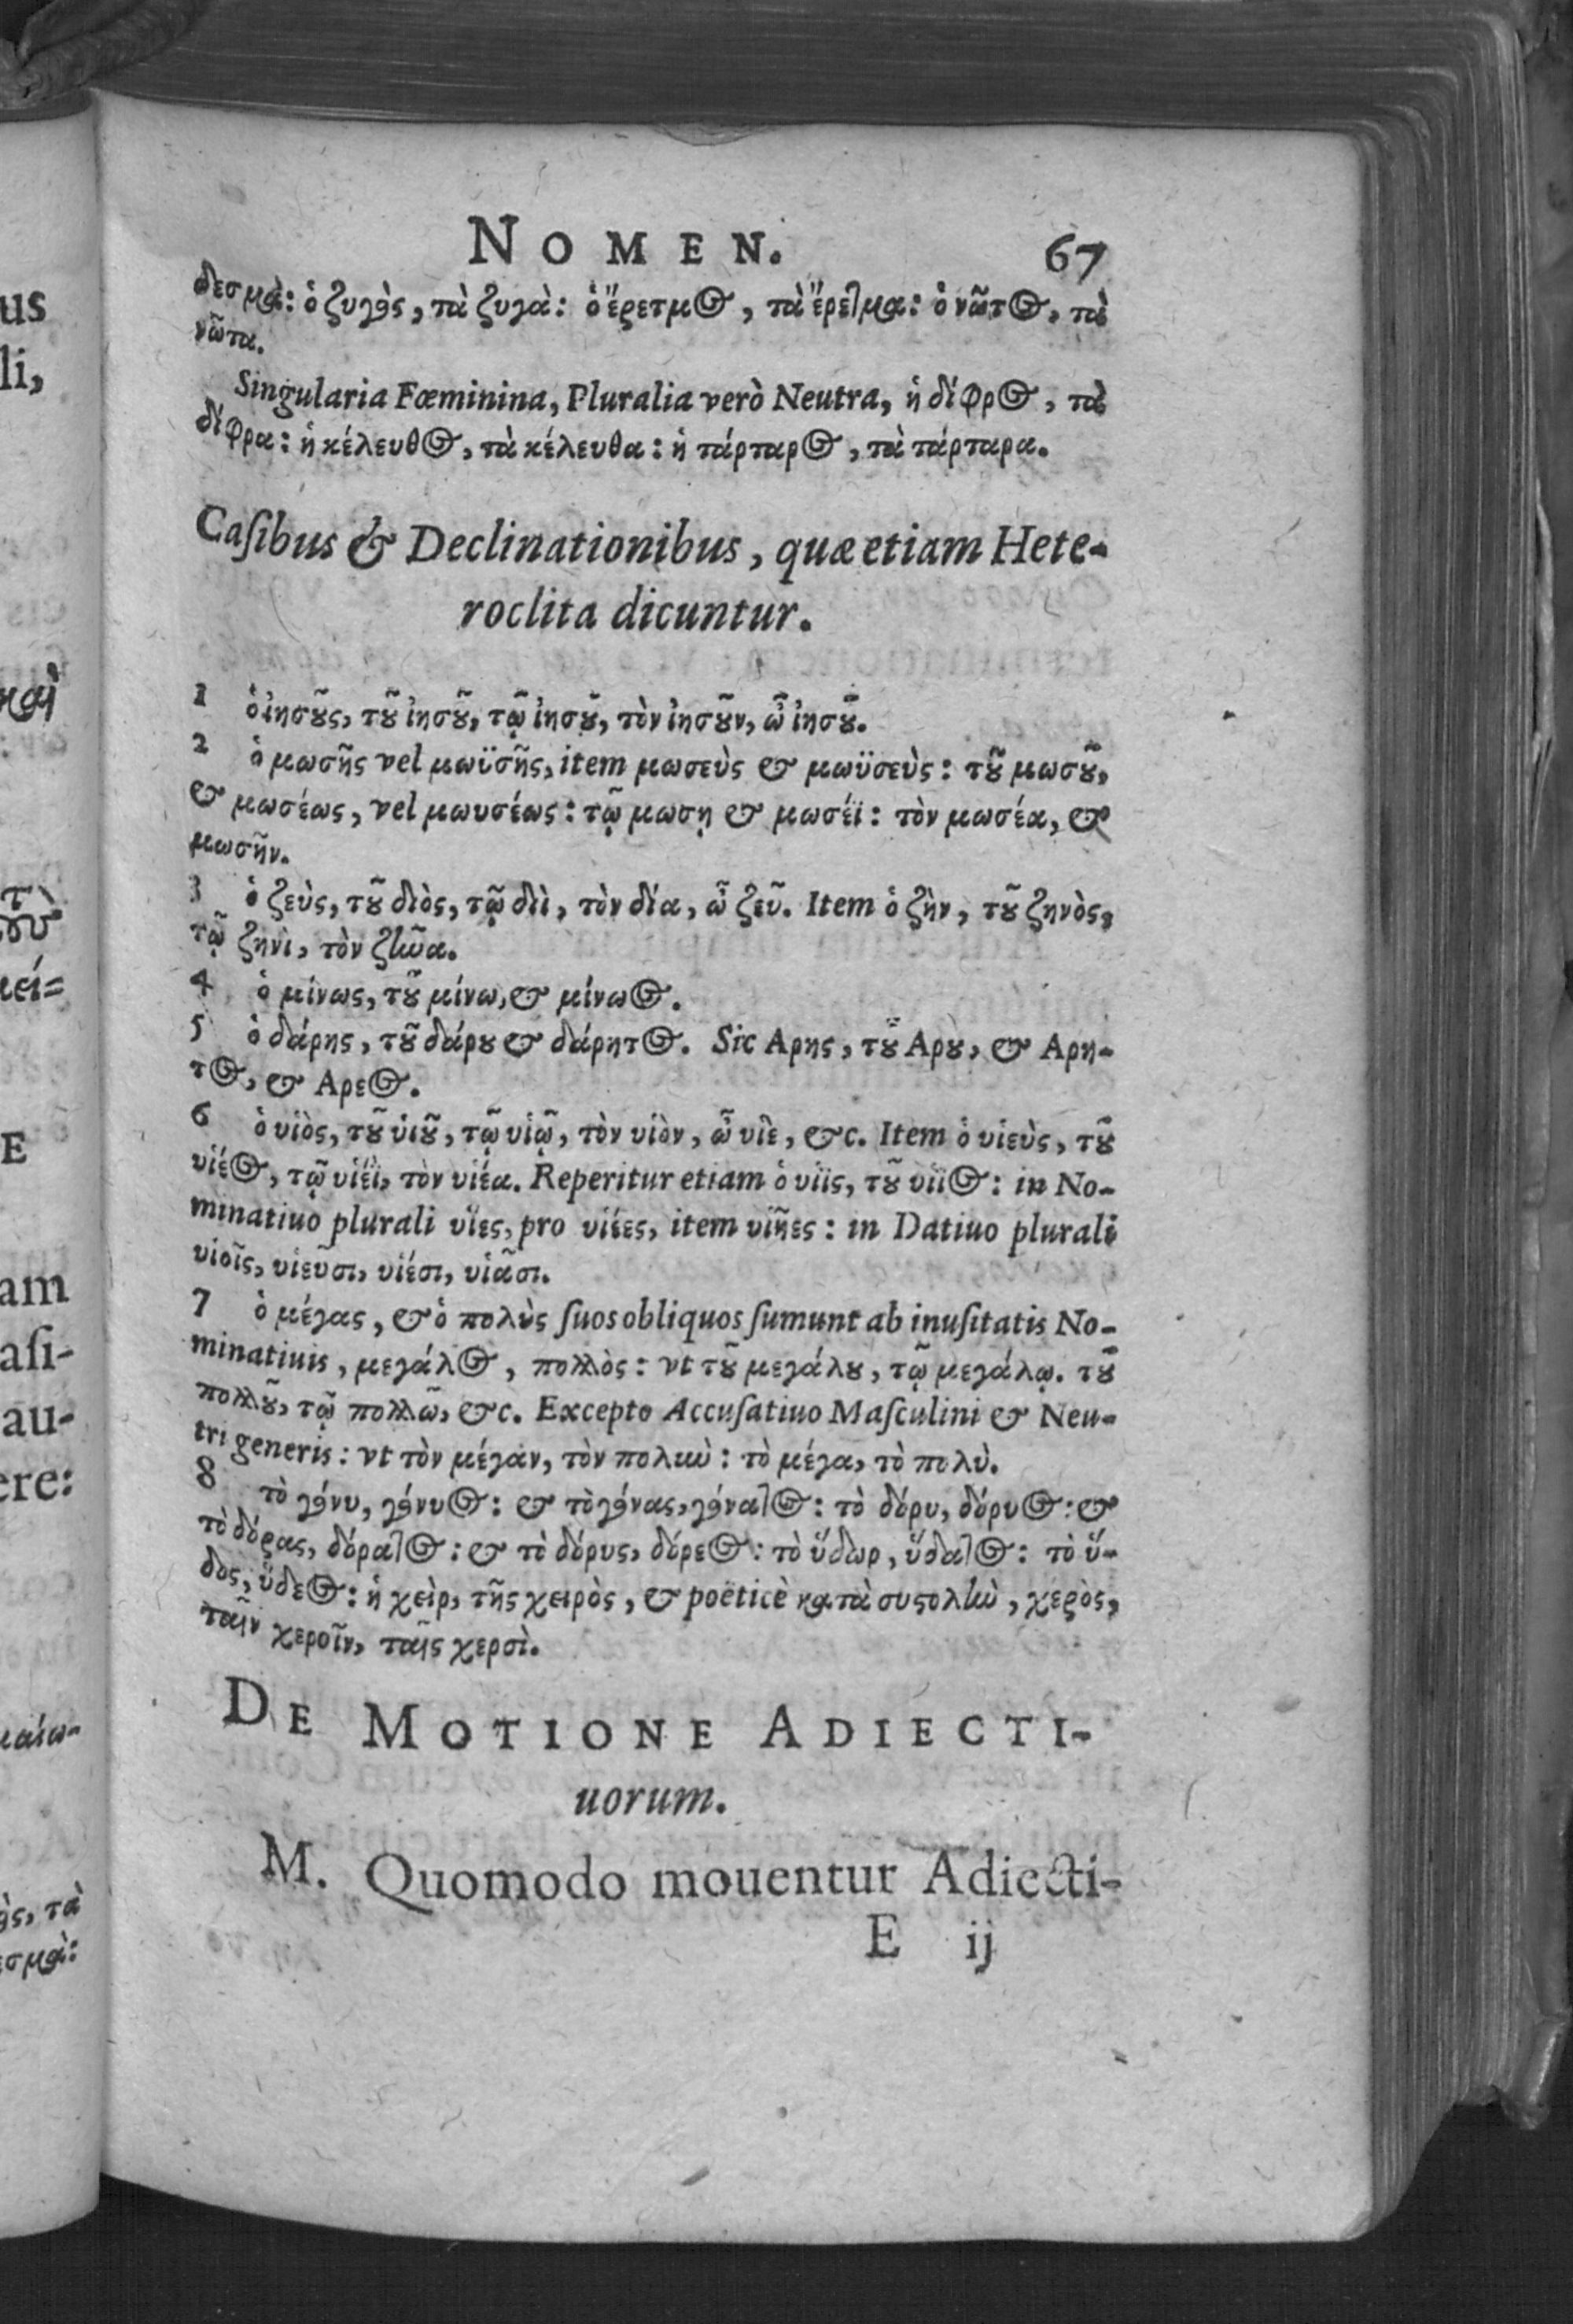 NOMEN. 67
δεσμὰ: ὁ ζυγὸς, τὰ ζυγὰ: ὁ ἔρετμος, τὰ ἔρετμα: ὁ νῶτος, τὰ
νῶτα.
Singularia Fœminina, Pluralia verò Neutra, ἡ δίφρος, τὰ
δίφρα: ἡ κέλευθος, τὰ κέλευθα: ἡ τάρταρος, τὰ τάρταρα.
Caſibus & Declinationibus, quæ etiam Hete-
roclita dicuntur.
1 ὁ ἰησοῦς, τοῦ ἰησοῦ, τῷ ἰησοῦ, τὸν ἰησοῦν, ὦ ἰησοῦ.
2 ὁ μωσῆς vel μωϋσῆς, item μωσεὺς & μωϋσεὺς: τοῦ μωσοῦ,
& μωσέως, vel μωυσέως: τῷ μωσῃ & μωσέϊ: τὸν μωσέα, &
μωσῆν.
3 ὁ ζεὺς, τοῦ διὸς, τῷ διὶ, τὸν δία, ὦ ζεῦ. Item ὁ ζὴν, τοῦ ζηνὸς,
τῷ ζηνὶ, τὸν ζῆνα.
4 ὁ μίνως, τοῦ μίνω, & μίνωος.
5 ὁ δάρης, τοῦ δάρου & δάρητος. Sic Αρης, τοῦ Αρου, & Αρη-
τος, & Αρεος.
6 ὁ υἱὸς, τοῦ ὑιοῦ, τῷ υἱῷ, τὸν υἱὸν, ὦ υἱὲ, &c. Item ὁ υἱεὺς, τοῦ
υἱέος, τῷ υἱέϊ, τὸν υἱέα. Reperitur etiam ὁ υἱις, τοῦ υἱιος: in No-
minatiuo plurali υἷες, pro υἱέες, item υἱῆες: in Datiuo plurali
υἱοῖς, υἱεῦσι, υἱέσι, υἱᾶσι.
7 ὁ μέγας, & ὁ πολὺς ſuos obliquos ſumunt ab inuſitatis No-
minatiuis, μεγάλος, πολλὸς: vt τοῦ μεγάλου, τῷ μεγάλῳ. τοῦ
πολλοῦ, τῷ πολλῶ, &c. Excepto Accuſatiuo Maſculini & Neu-
tri generis: vt τὸν μέγαν, τὸν πολὺν: τὸ μέγα, τὸ πολὺ.
8 τὸ γόνυ, γόνυος: & τὸ γόνας, γόνατος: τὸ δόρυ, δόρυος: &
τὸ δόρας, δόρατος: & τὸ δόρυς, δόρεος: τὸ ὕδωρ, ὕδατος: τὸ ὕ-
δος, ὕδεος: ἡ χεὶρ, τῆς χειρὸς, & poëticè κατὰ συστολὴν, χερὸς,
ταῖν χεροῖν, ταῖς χερσὶ.
DE MOTIONE ADIECTI-
uorum.
M. Quomodo mouentur Adiecti-
E ij